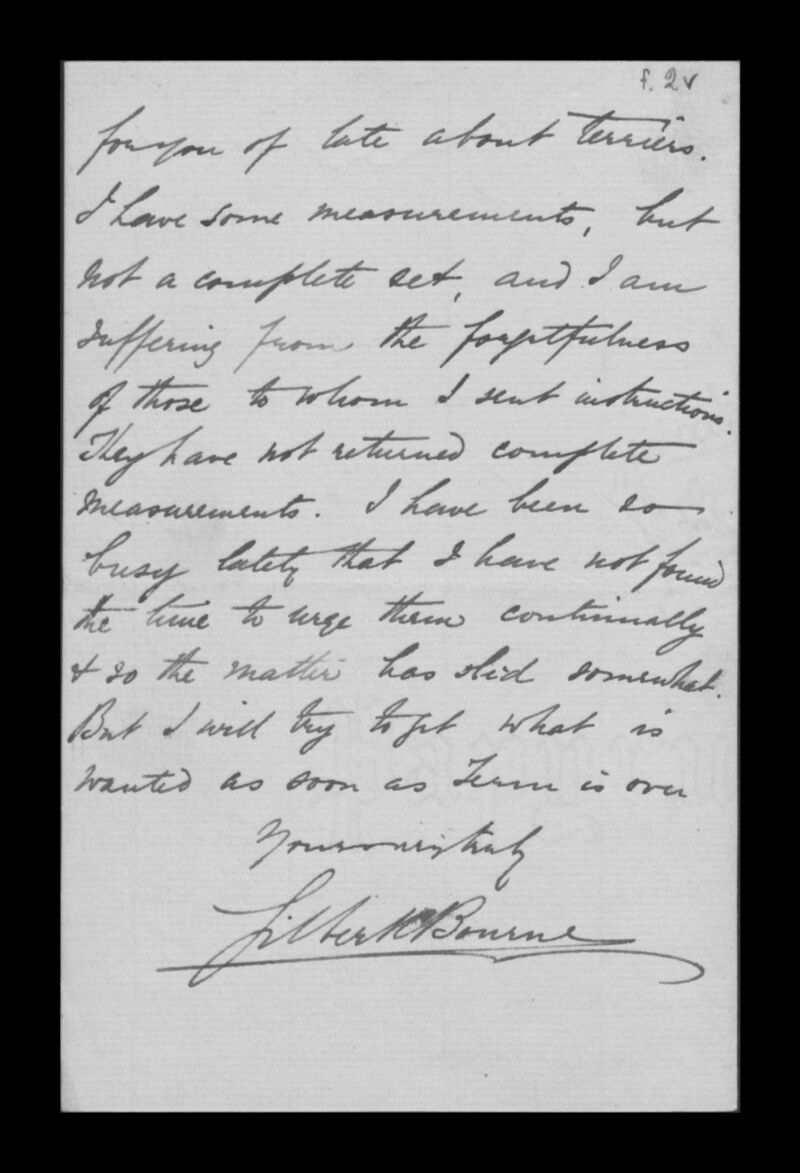 f. 2v
for you of late about terriers.
I have some measurements, but
not a complete set, and I am
suffering from the forgetfulness
of those to whom I sent instructions.
They have not returned complete
measurements. I have been so
busy lately that I have not found
the time to urge them continually
& so the matter has slid somewhat.
But I will try to get what is
wanted as soon as Term is over
Yours very truly
Gilbert C Bourne